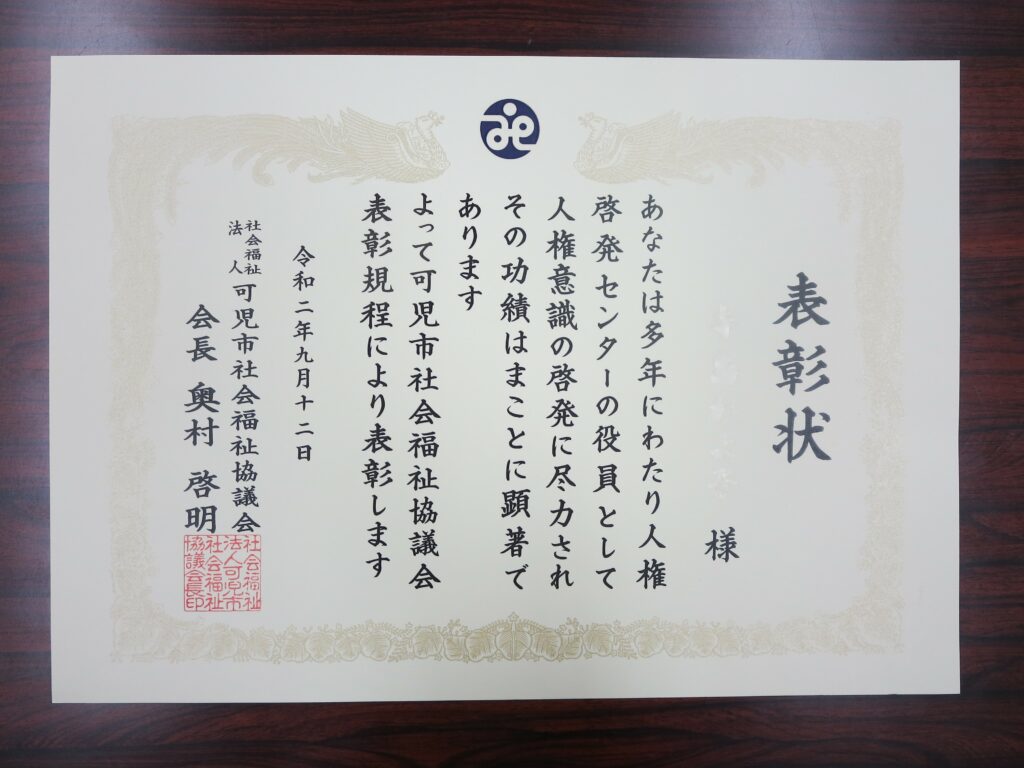 表彰状
様
あなたは多年にわたり人権
啓発センターの役員として
人権意識の啓発に尽力され
その功績はまことに顕著で
あります
よって可児市社会福祉協議会
表彰規程により表彰します
令和二年九月十二日
社会福祉法人 可児市社会福祉協議会
会長 奥村 啓明
社会福祉
法人可児市
社会福祉
協議会長印